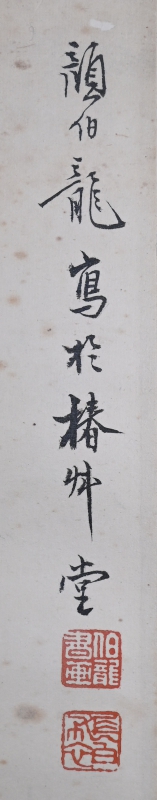 顏伯龍寫於椿艸堂
伯龍書畫